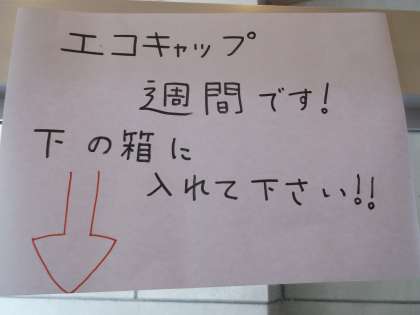 エコキャップ
週間です!
下の箱に
入れて下さい!!